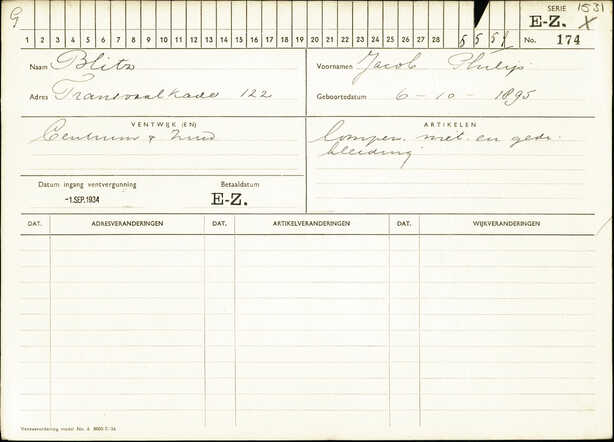 G
SERIE 1531
E-Z. X
1 2 3 4 5 6 7 8 9 10 11 12 13 14 15 16 17 18 19 20 21 22 23 24 25 26 27 28
No. 174
Naam Blitz
Voornamen Jacob Philip
Adres Transvaalkade 122
Geboortedatum 6-10-1895
VENTWIJK (EN)
ARTIKELEN
Centrum & Zuid
lompen, met. en gedr.
kleeding
Datum ingang ventvergunning
Betaaldatum
-1.SEP.1934
E-Z.
DAT. ADRESVERANDERINGEN DAT. ARTIKELVERANDERINGEN DAT. WIJKVERANDERINGEN
Ventverordening model No. 6